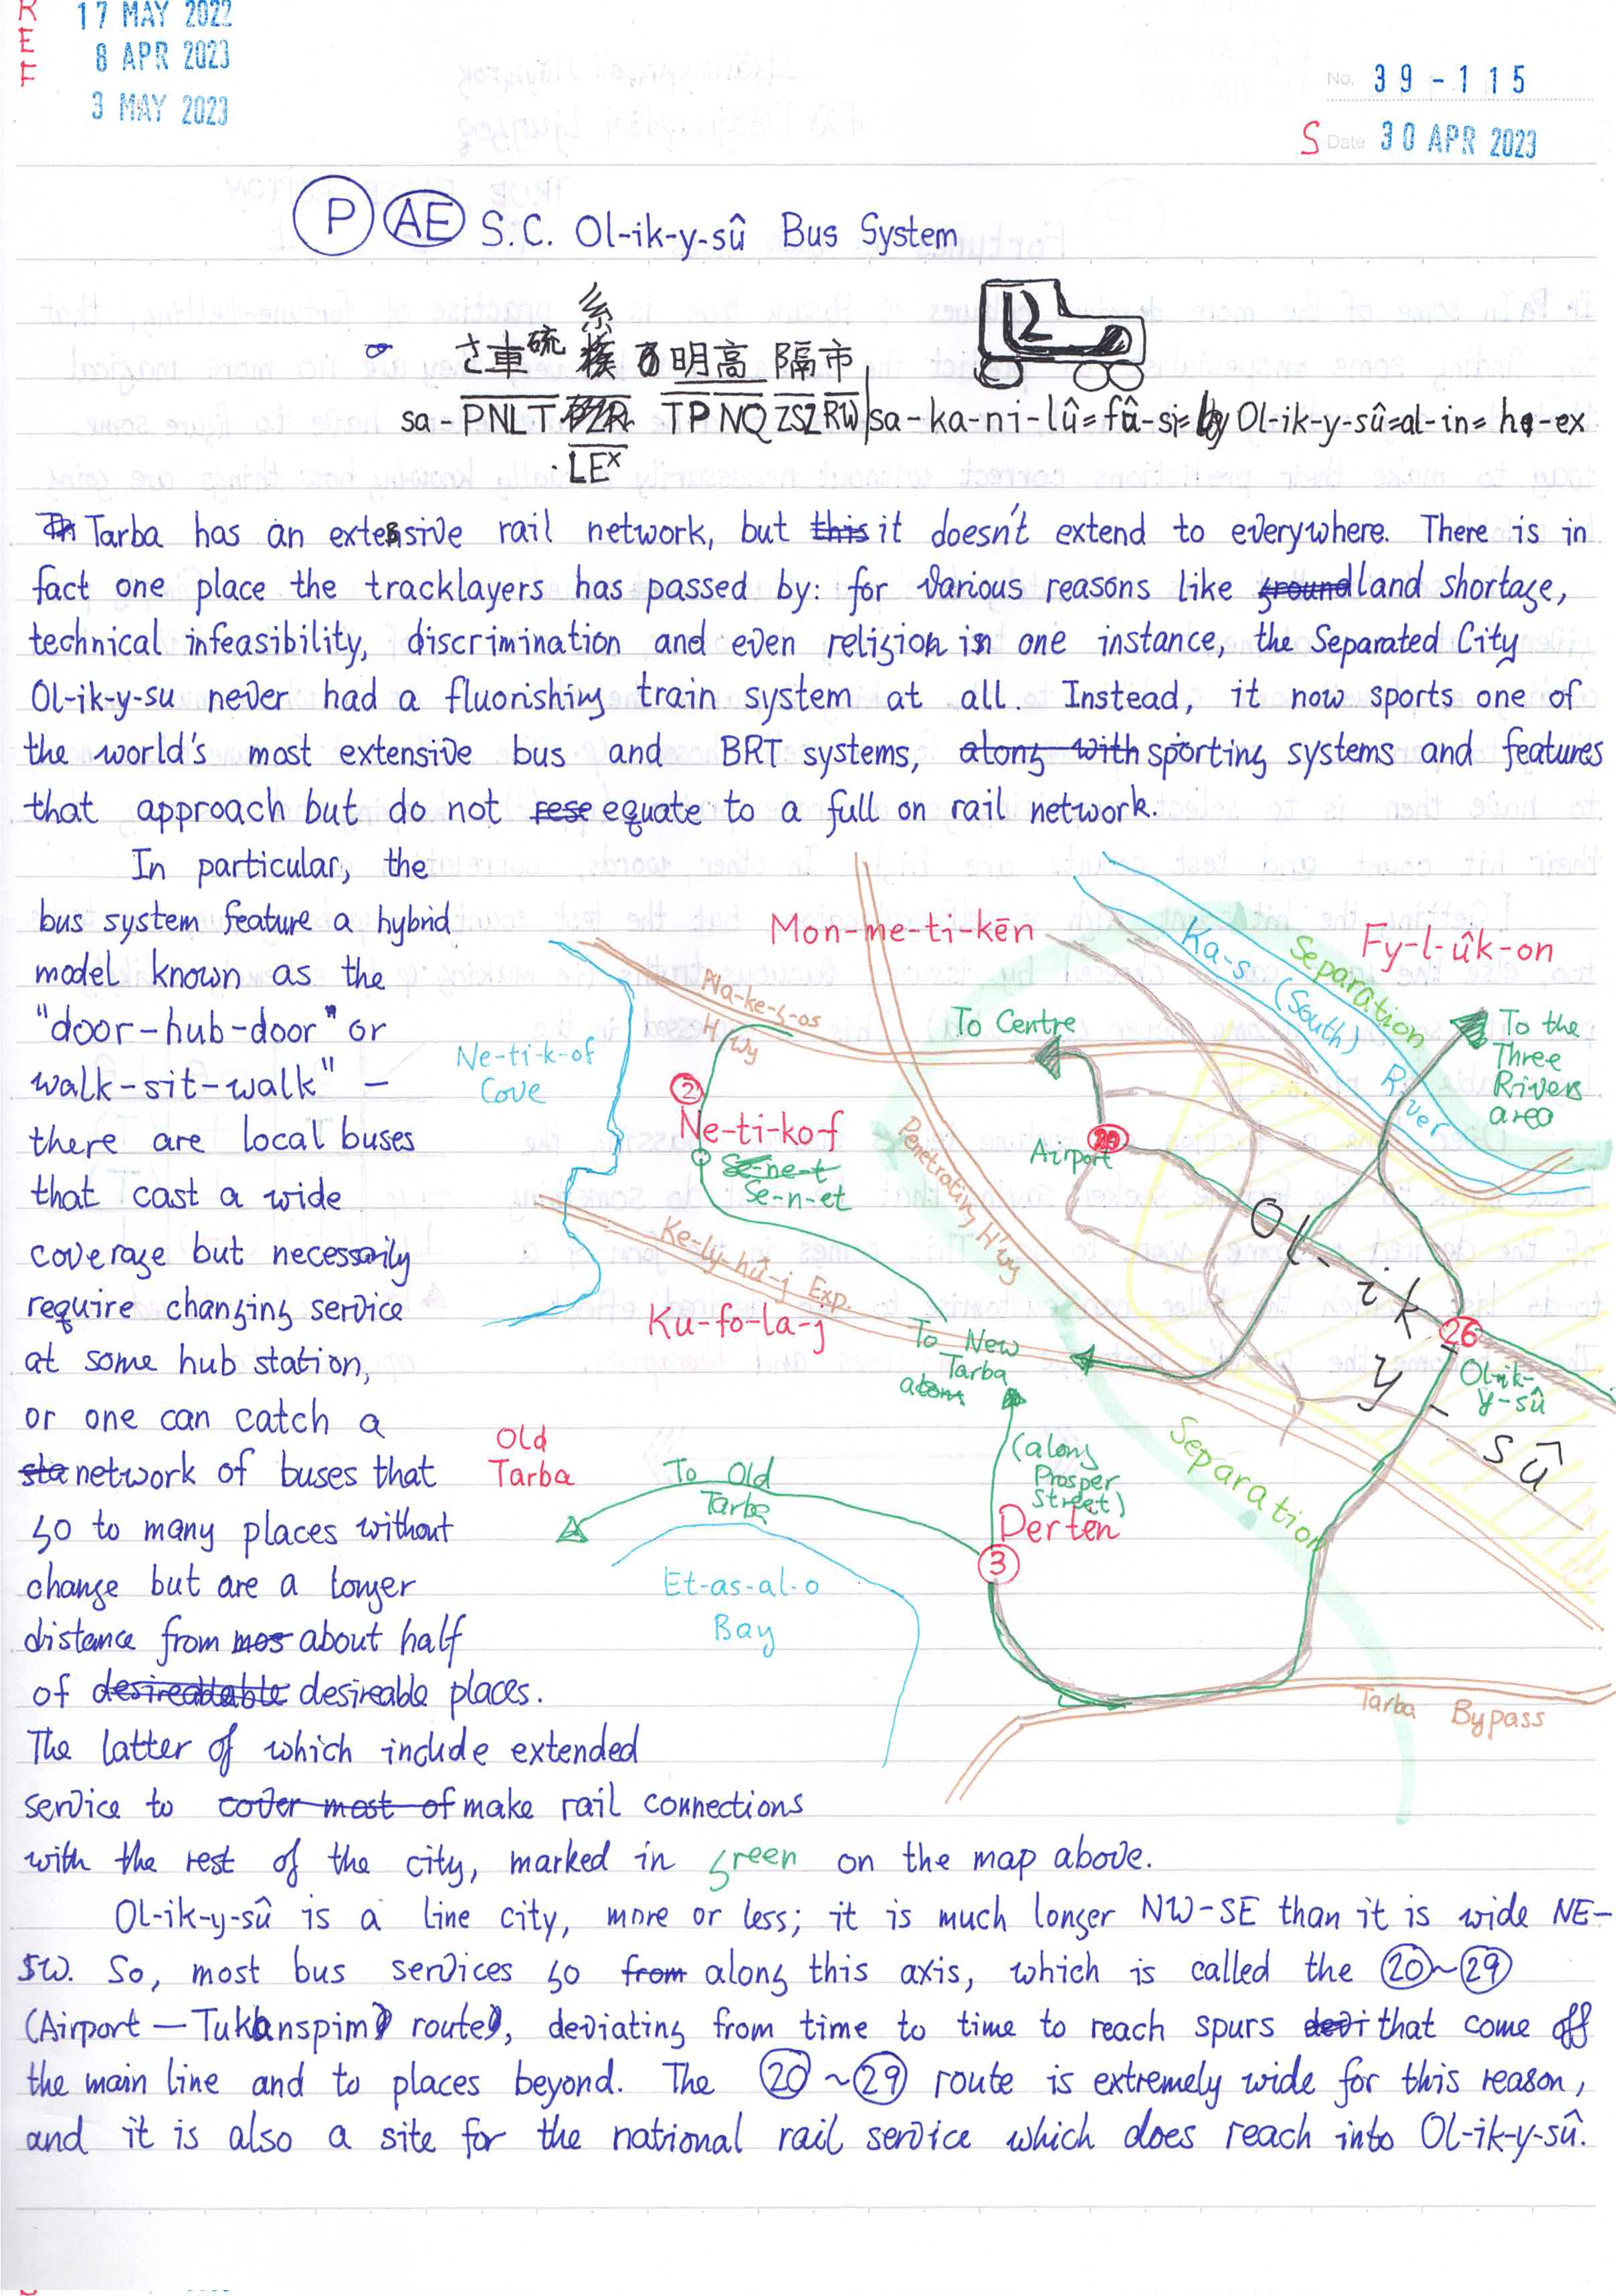 REF
17 MAY 2022
8 APR 2023
3 MAY 2023
No. 39-115
S Date 30 APR 2023
P AE S.C. Ol-ik-y-sû Bus System
系
さ車硫 明高隔市
sa-PNLT TP NQ ZSZ RW sa-ka-ni-lû=fû-si= Ol-ik-y-sû=al-in= -ex
LEx
Tarba has an extensive rail network, but this it doesn't extend to everywhere. There is in
fact one place the tracklayers has passed by: for various reasons like ground land shortage,
technical infeasibility, discrimination and even religion in one instance, the Separated City
Ol-ik-y-su never had a fluorishing train system at all. Instead, it now sports one of
the world's most extensive bus and BRT systems, along with sporting systems and features
that approach but do not rese equate to a full on rail network.
In particular, the
bus system feature a hybrid
model known as the
"door-hub-door" or
walk-sit-walk" –
there are local buses
that cast a wide
coverage but necessarily
require changing service
at some hub station,
or one can catch a
sta network of buses that
go to many places without
change but are a longer
distance from mos about half
of desireable places.
The latter of which include extended
service to cover most of make rail connections
with the rest of the city, marked in green on the map above.
Mon-me-ti-kēn
Fy-l-ûk-on
Ka-s (South) River
Separation
Na-ke-s-os
H'wy
To Centre
To the
Three
Rivers
area
Ne-ti-k-of
Cove
2
Ne-ti-ko-f
Se-ne-t
Se-n-et
Penetrating H'wy
20
Airport
Ol-ik-y-sû
Ke-ly-hû-j Exp.
Ku-fo-la-j
To New
Tarba
26
Ol-ik-
y-sû
Old
Tarba
To Old
Tarba
(along
Prosper
Street)
Derten
3
Separation
Et-as-al-o
Bay
Tarba Bypass
Ol-ik-y-sû is a line city, more or less; it is much longer NW-SE than it is wide NE-
SW. So, most bus services go from along this axis, which is called the 20~29
(Airport – Tukanspim) route, deviating from time to time to reach spurs devi that come off
the main line and to places beyond. The 20~29 route is extremely wide for this reason,
and it is also a site for the national rail service which does reach into Ol-ik-y-sû.